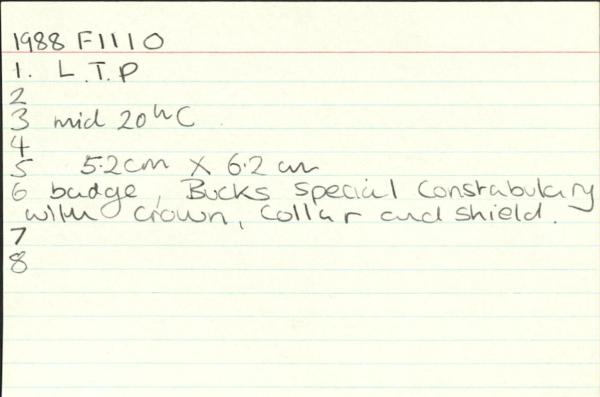 1988 F1110
1. L.T.P
2
3 mid 20th C
4
5 5.2cm X 6.2 cm
6 badge, Bucks special Constabulary
with crown, collar and shield.
7
8